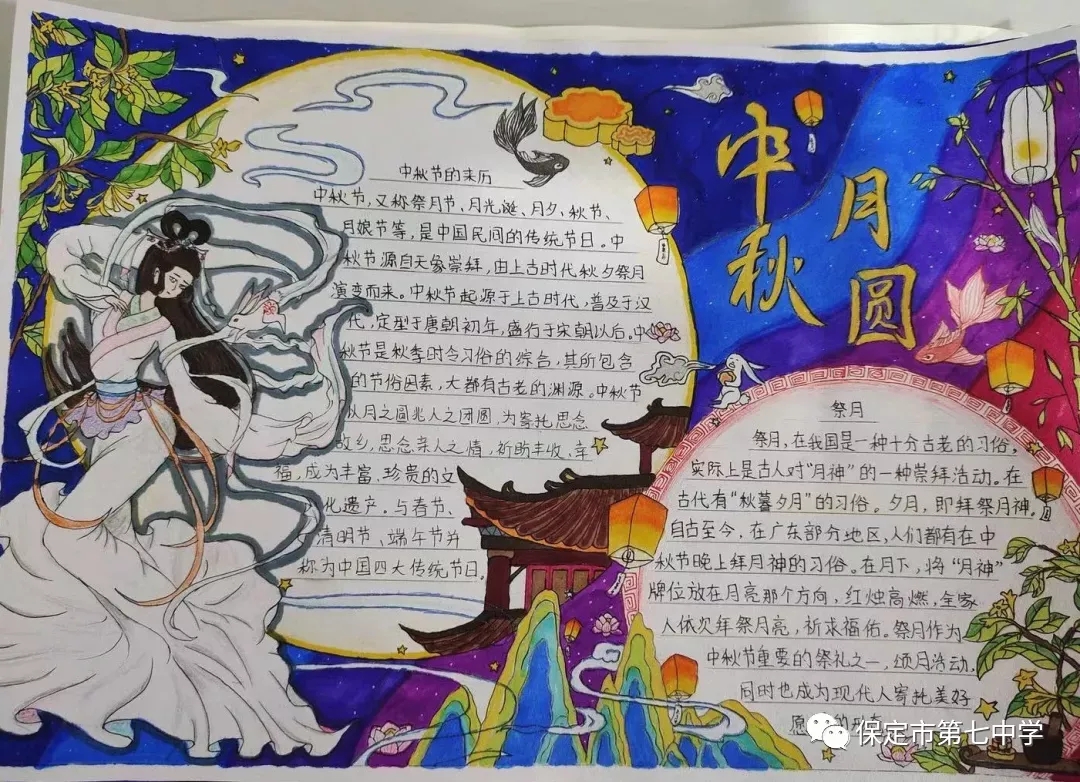 中秋
月圆
中秋节的来历
中秋节,又称祭月节、月光诞、月夕、秋节、
月娘节等,是中国民间的传统节日。中
秋节源自天象崇拜,由上古时代秋夕祭月
演变而来。中秋节起源于上古时代,普及于汉
代,定型于唐朝初年,盛行于宋朝以后。中
秋节是秋季时令习俗的综合,其所包含
的节俗因素,大都有古老的渊源。中秋节
以月之圆兆人之团圆,为寄托思念
故乡,思念亲人之情,祈盼丰收、幸
福,成为丰富、珍贵的文
化遗产。与春节、
清明节、端午节并
称为中国四大传统节日。
祭月
祭月,在我国是一种十分古老的习俗,
实际上是古人对“月神”的一种崇拜活动。在
古代有“秋暮夕月”的习俗。夕月,即拜祭月神。
自古至今,在广东部分地区,人们都有在中
秋节晚上拜月神的习俗。在月下,将“月神”
牌位放在月亮那个方向,红烛高燃,全家
人依次拜祭月亮,祈求福佑。祭月作为
中秋节重要的祭礼之一,颂月活动,
同时也成为现代人寄托美好
愿
保定市第七中学